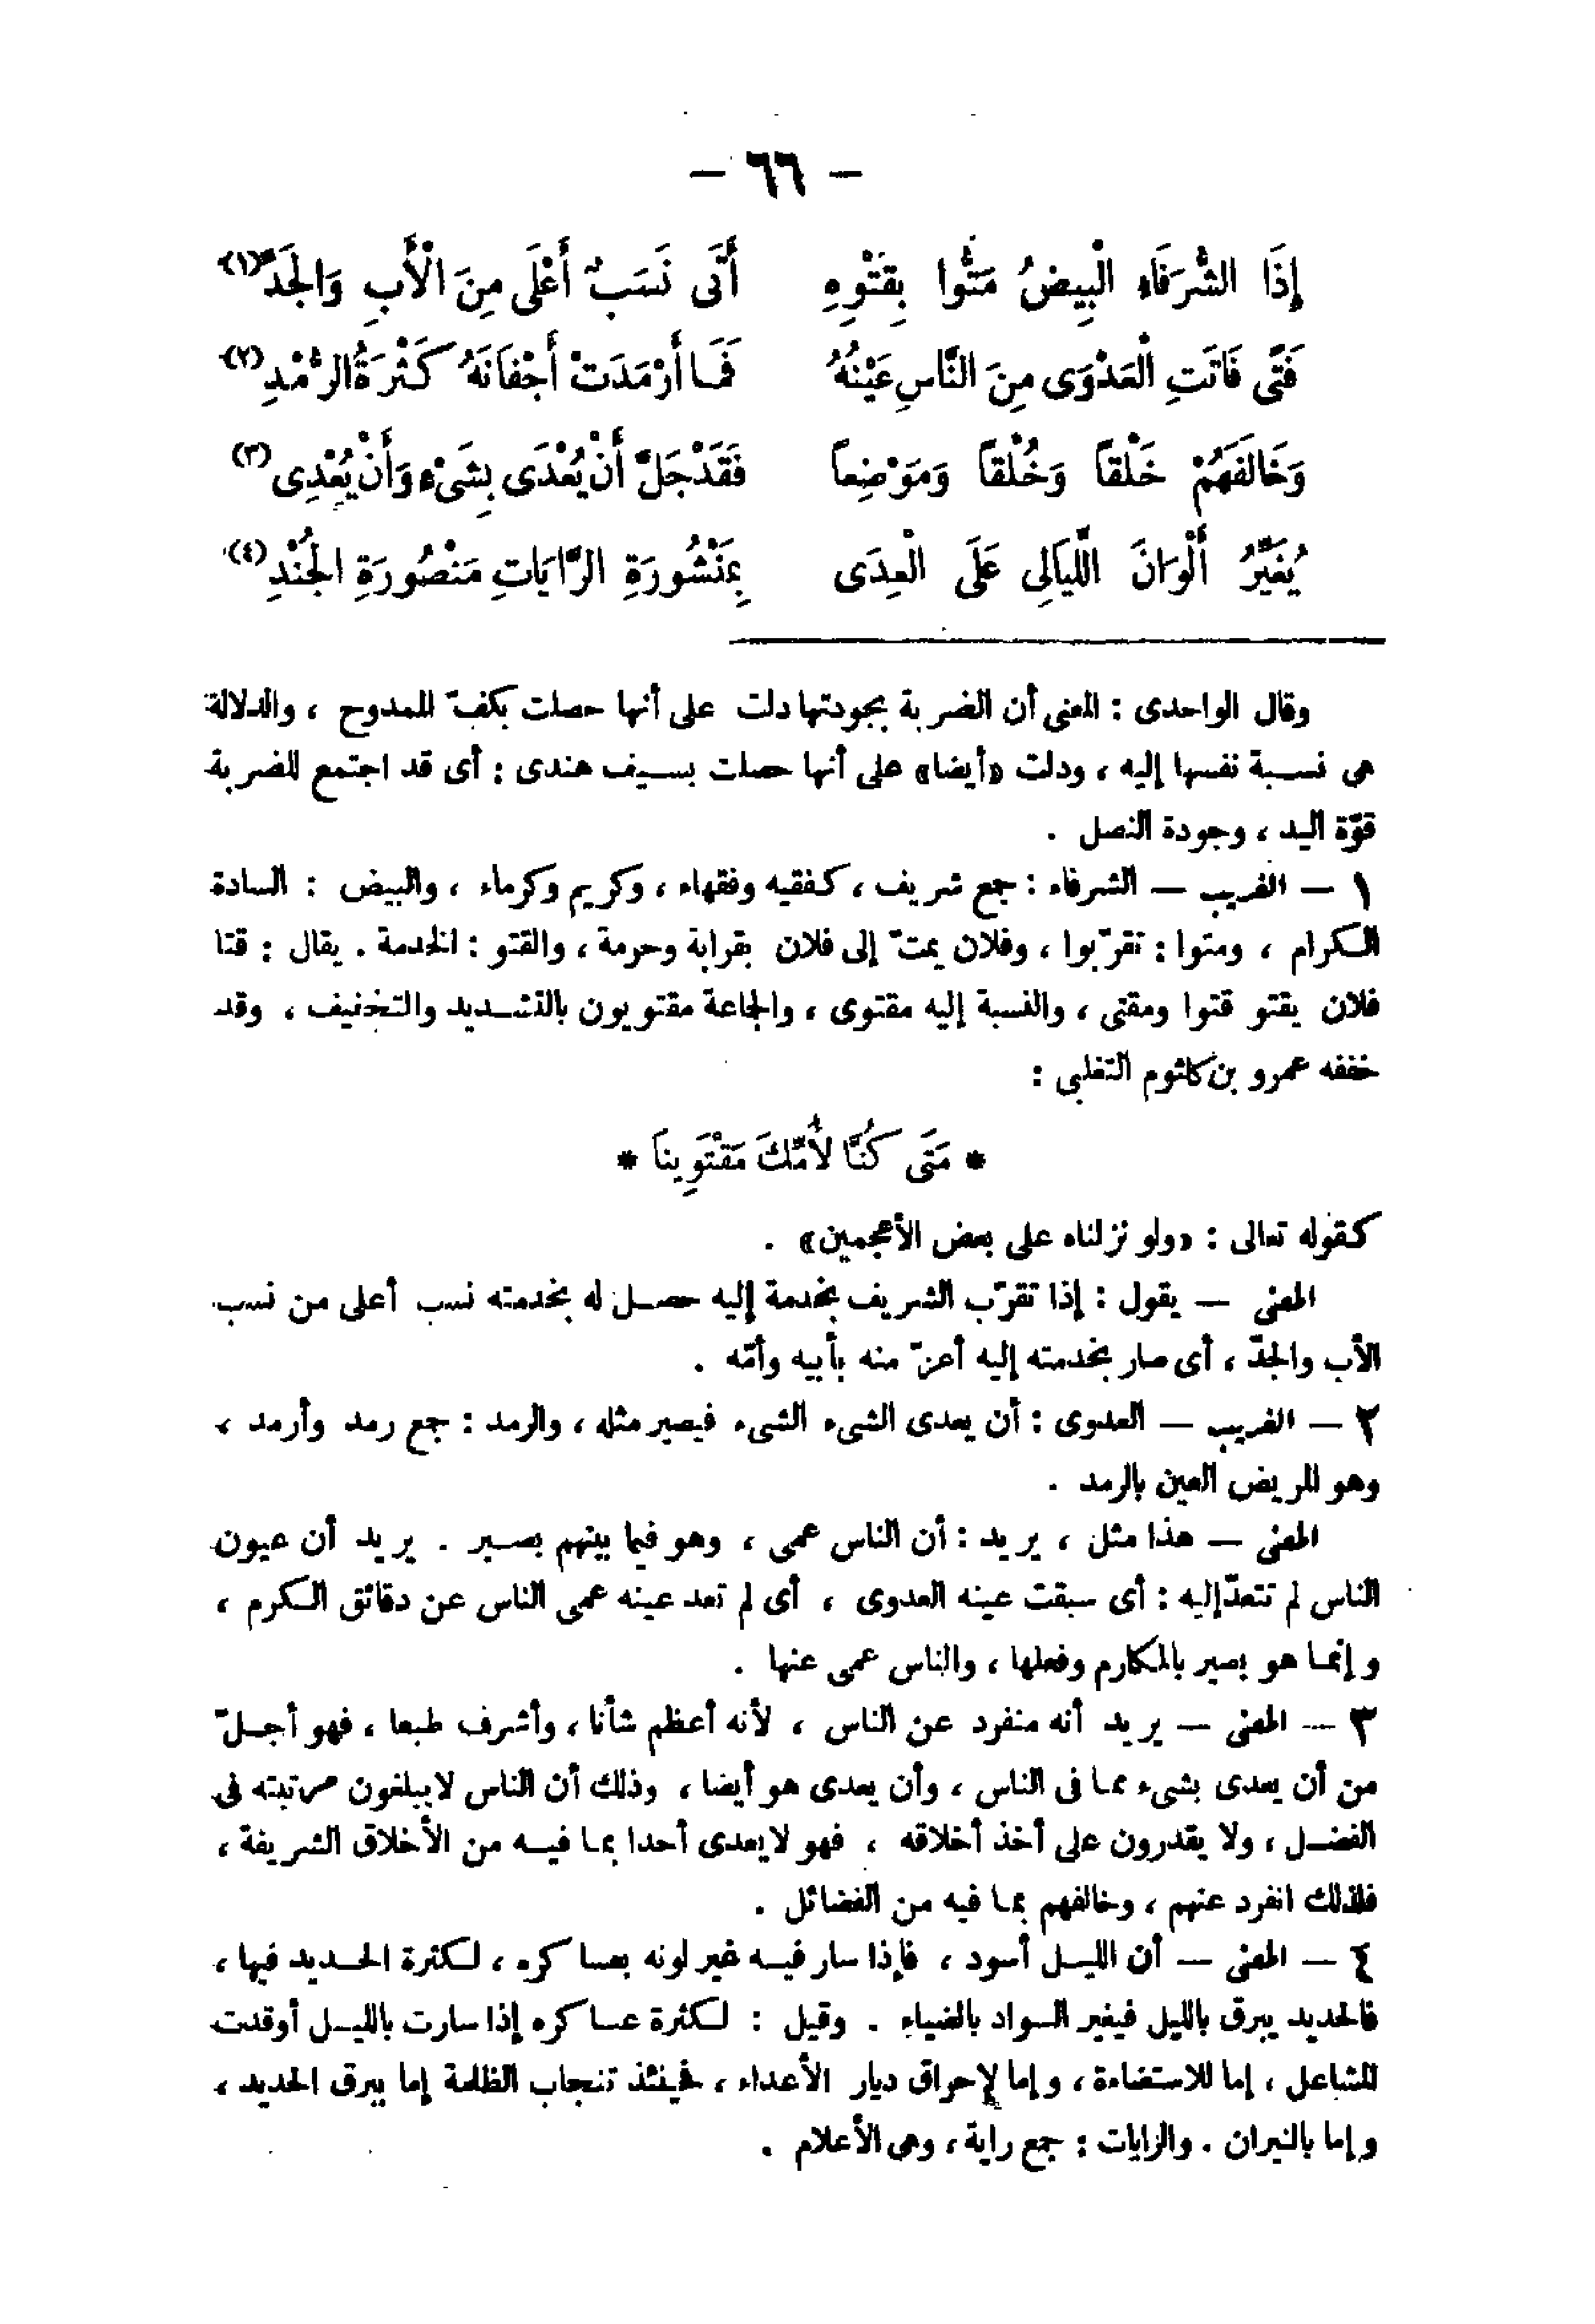 — ٦٦ —
إِذَا الشُّرَفَاءِ الْبِيضُ مَتُّوا بِقَتْوِهِ أَتَى نَسَبٌ أَعْلَى مِنَ الْأَبِ وَالْجَدِّ (١)
فَتًى فَاتَتِ الْعَدْوَى مِنَ النَّاسِ عَيْنُهُ فَمَا أَرْمَدَتْ أَجْفَانَهُ كَثْرَةُ الرُّمْدِ (٢)
وَخَالَفَهُمْ خَلْقاً وَخُلْقاً وَمَوْضِعاً فَقَدْ جَلَّ أَنْ يُعْدَى بِشَىْءٍ وَأَنْ يُعْدِى (٣)
يُغَيِّرُ أَلْوَانَ اللَّيَالِى عَلَى الْعِدَى بِمَنْشُورَةِ الرَّايَاتِ مَنْصُورَةِ الجُنْدِ (٤)
وقال الواحدى : المعنى أن الضربة بجودتها دلت على أنها حصلت بكفّ الممدوح ، والدلالة
هى نسبة نفسها إليه ، ودلت «أيضا» على أنها حصلت بسيف هندى : أى قد اجتمع للضربة
قوّة اليد ، وجودة النصل .
١ — الغريب — الشرفاء : جمع شريف ، كفقيه وفقهاء ، وكريم وكرماء ، والبيض : السادة
الكرام ، ومتوا : تقرّبوا ، وفلان يمتّ إلى فلان بقرابة وحرمة ، والقتو : الخدمة . يقال : قتا
فلان يقتو قتوا ومقتى ، والنسبة إليه مقتوى ، والجماعة مقتويون بالتشديد والتخفيف ، وقد
خففه عمرو بن كلثوم التغلبى :
* مَتَى كُنَّا لأُمِّكَ مَقْتَوِينَا *
كقوله تعالى : «ولو نزلناه على بعض الأعجمين» .
المعنى — يقول : إذا تقرّب الشريف بخدمة إليه حصل له بخدمته نسب أعلى من نسب
الأب والجدّ ، أى صار بخدمته إليه أعزّ منه بأبيه وأمّه .
٢ — الغريب — العدوى : أن يعدى الشىء الشىء فيصير مثله ، والرمد : جمع رمد وأرمد ،
وهو المريض العين بالرمد .
المعنى — هذا مثل ، يريد : أن الناس عمى ، وهو فيما بينهم بصير . يريد أن عيون
الناس لم تتعدّ إليه : أى سبقت عينه العدوى ، أى لم تعد عينه عمى الناس عن دقائق الكرم ،
وإنما هو بصير بالمكارم وفعلها ، والناس عمى عنها .
٣ — المعنى — يريد أنه منفرد عن الناس ، لأنه أعظم شأنا ، وأشرف طبعا ، فهو أجلّ
من أن يعدى بشىء مما فى الناس ، وأن يعدى هو أيضا ، وذلك أن الناس لا يبلغون مرتبته فى
الفضل ، ولا يقدرون على أخذ أخلاقه ، فهو لا يعدى أحدا بما فيه من الأخلاق الشريفة ،
فلذلك انفرد عنهم ، وخالفهم بما فيه من الفضائل .
٤ — المعنى — أن الليل أسود ، فإذا سار فيه غير لونه بعساكره ، لكثرة الحديد فيها ،
فالحديد يبرق بالليل فيغير السواد بالضياء . وقيل : لكثرة عساكره إذا سارت بالليل أوقدت
المشاعل ، إما للاستضاءة ، وإما لإحراق ديار الأعداء ، فحينئذ تنجاب الظلمة إما ببرق الحديد ،
وإما بالنيران . والرايات : جمع راية ، وهى الأعلام .